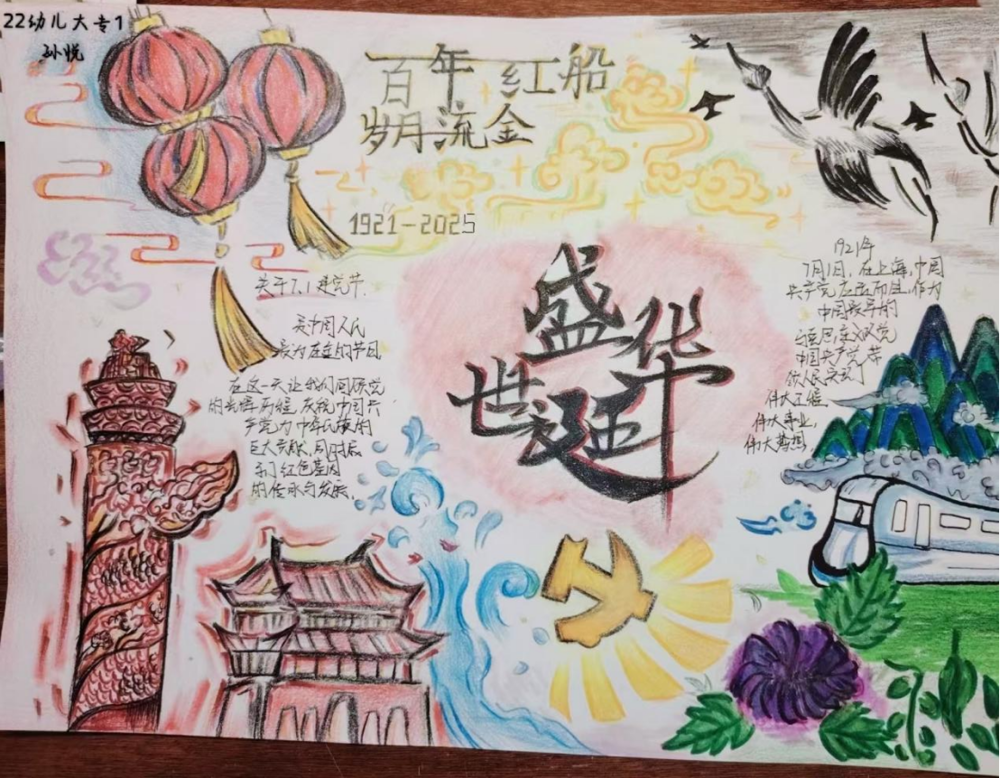 22幼儿大专1
孙悦
百年红船
岁月流金
1921-2025
关于7.1建党节.
是中国人民
最为在意的节日
在这一天让我们回顾党
的光辉历程,庆祝中国共
产党为中华民族的
巨大贡献,同时启
示了红色基因
的传承与发展.
盛
世
华
诞
1921年
7月1日,在上海,中国
共产党应运而且,作为
中国领导的
马克思主义政党
中国共产党带
领人民实现了
伟大工程,
伟大事业,
伟大梦想.